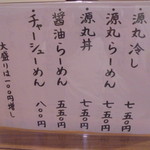 ・源丸冷し 七五〇
・源丸らーめん 七五〇
・源丸丼 七五〇
・醤油らーめん 五五〇
・チャーシューめん 八〇〇
大盛りは一〇〇円増し